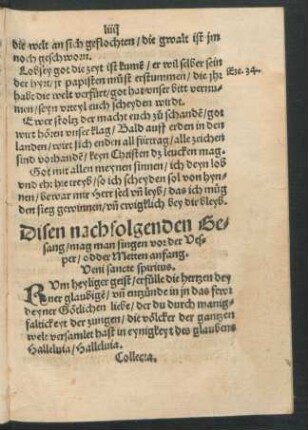 liiij
die welt an sich geflochten / die gwalt ist jm
noch geschworn.
Lobsey got die zeyt ist kumē / er wil selber sein
der hyrt / jr papisten müst erstummen / die jhr Eze. 34.
habt die welt verfürt / got hat vnser bitt vernu-
men / seyn vrteyl euch scheyden wirdt.
Ewer stoltz der macht euch zů schandē / got
wirt hören vnser klag / Bald auff erden in den
landen / wirt sich enden all fürtrag / alle zeichen
sind vorhandē / keyn Christen dz leucken mag.
Got mit allen meynen sinnen / ich deyn lob
vnd ehr hie treyb / so ich scheyden sol von hyn-
nen / bewar mir Herr seel vñ leyb / das ich můg
den sieg gewinnen / vñ ewigklich bey dir bleyb.
Disen nachfolgenden Ge-
sang / mag man singen vor der Ves-
per / odder Metten anfang.
Veni sancte spiritus.
KUm heyliger geist / erfülle die hertzen dey
ner glaubigē / vñ entzünde in jn das fewr
deyner Götlichen liebe / der du durch manig-
faltickeyt der zungen / die völcker der gantzen
welt versamlet hast in eynigkeyt des glaubens
Halleluia / Halleluia.
Collecta.